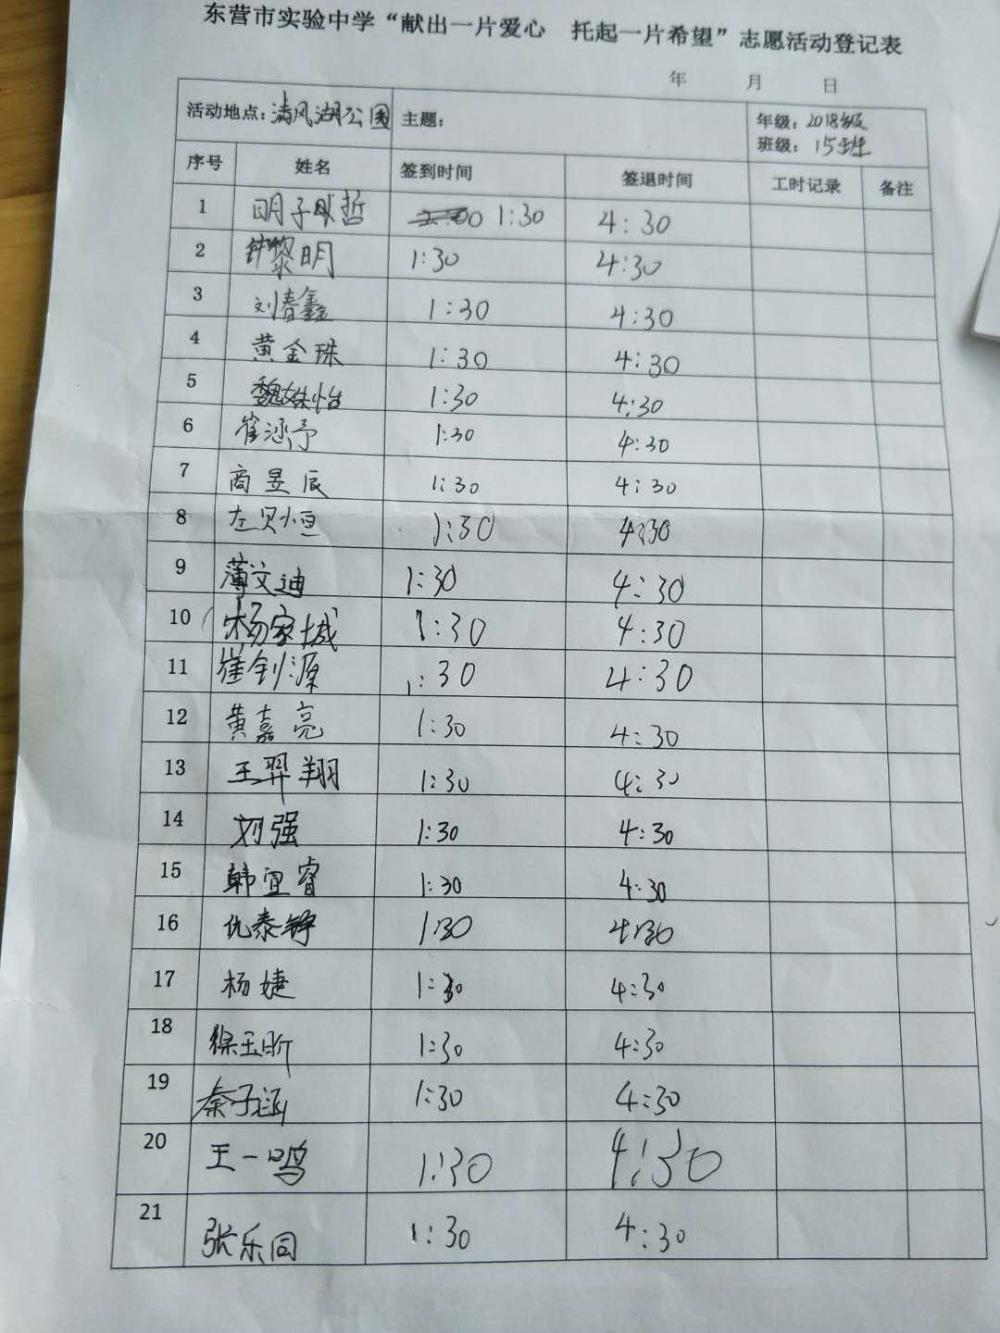 东营市实验中学“献出一片爱心 托起一片希望”志愿活动登记表
年 月 日
活动地点：清风湖公园 主题： 年级：2018级
班级：15班
序号 姓名 签到时间 签退时间 工时记录 备注
1 明子 哲 1:30 4:30
2 钟黎明 1:30 4:30
3 刘春鑫 1:30 4:30
4 黄金珠 1:30 4:30
5 魏姝怡 1:30 4:30
6 崔涵予 1:30 4:30
7 商昱辰 1:30 4:30
8 左贝恒 1:30 4:30
9 薄文迪 1:30 4:30
10 杨家城 1:30 4:30
11 崔钊源 1:30 4:30
12 黄嘉亮 1:30 4:30
13 王羿翔 1:30 4:30
14 刘强 1:30 4:30
15 韩宜睿 1:30 4:30
16 仇泰铮 1:30 4:30
17 杨婕 1:30 4:30
18 徐玉昕 1:30 4:30
19 秦子涵 1:30 4:30
20 王一鸣 1:30 4:30
21 张乐同 1:30 4:30